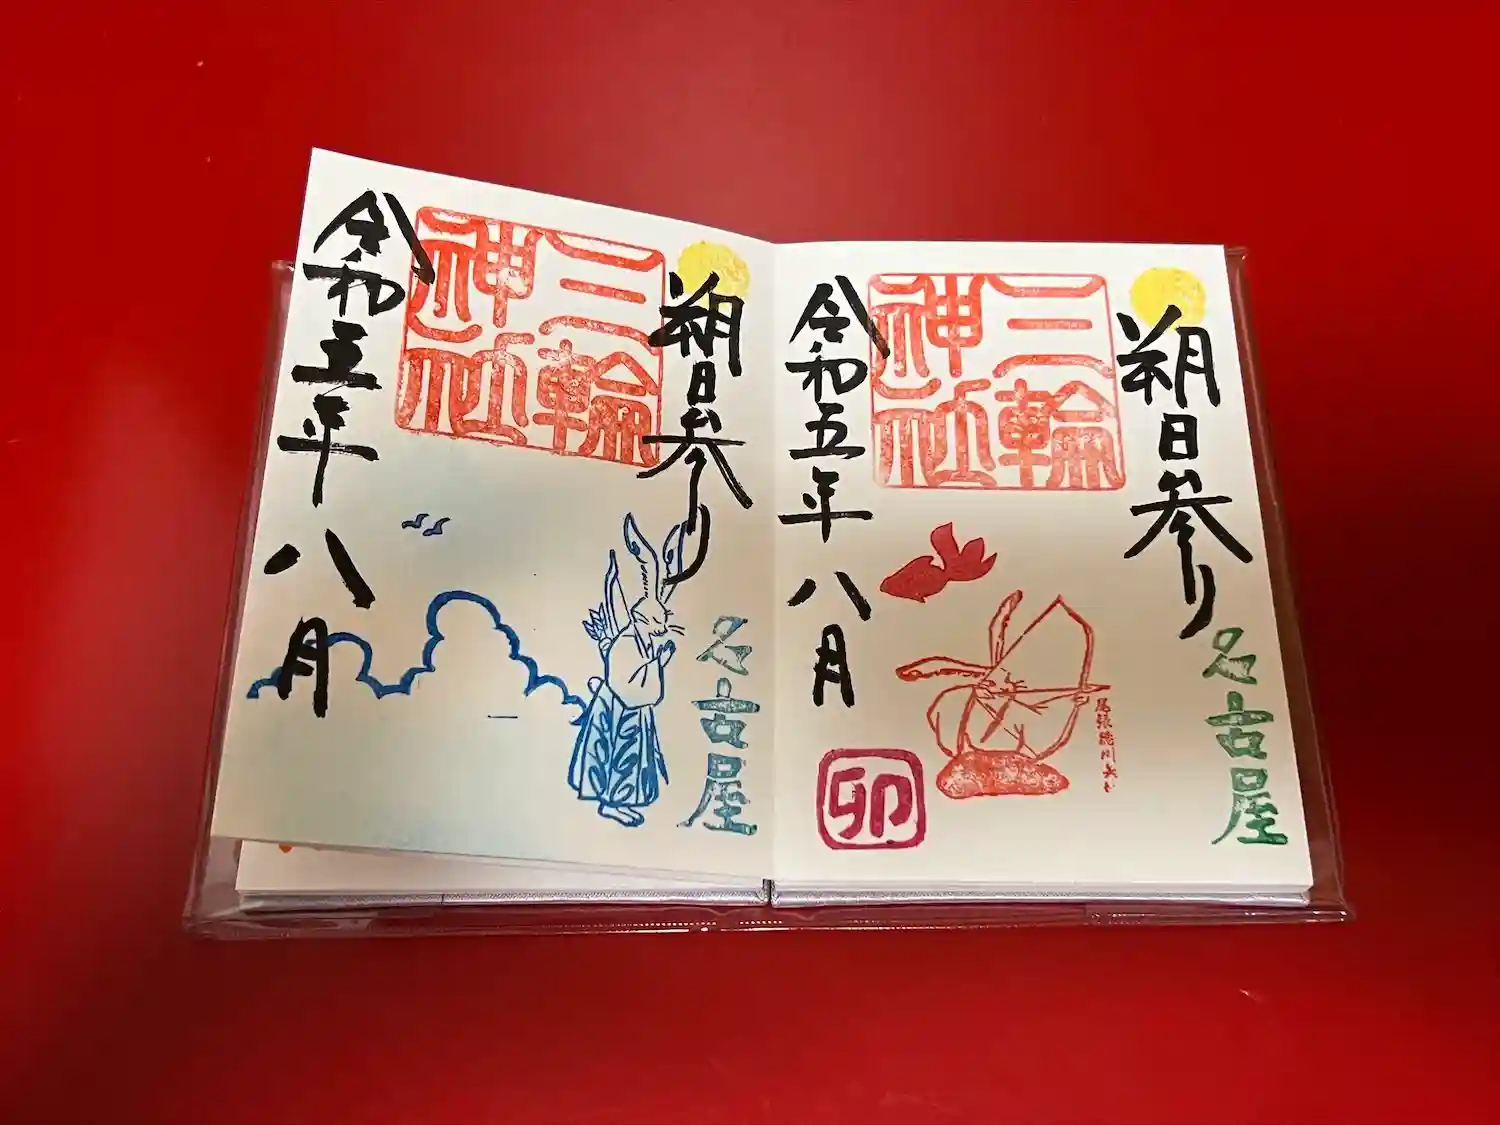 朔日参り
三輪
神社
令和五年 八月
名古屋
朔日参り
三輪
神社
令和五年 八月
名古屋
卯